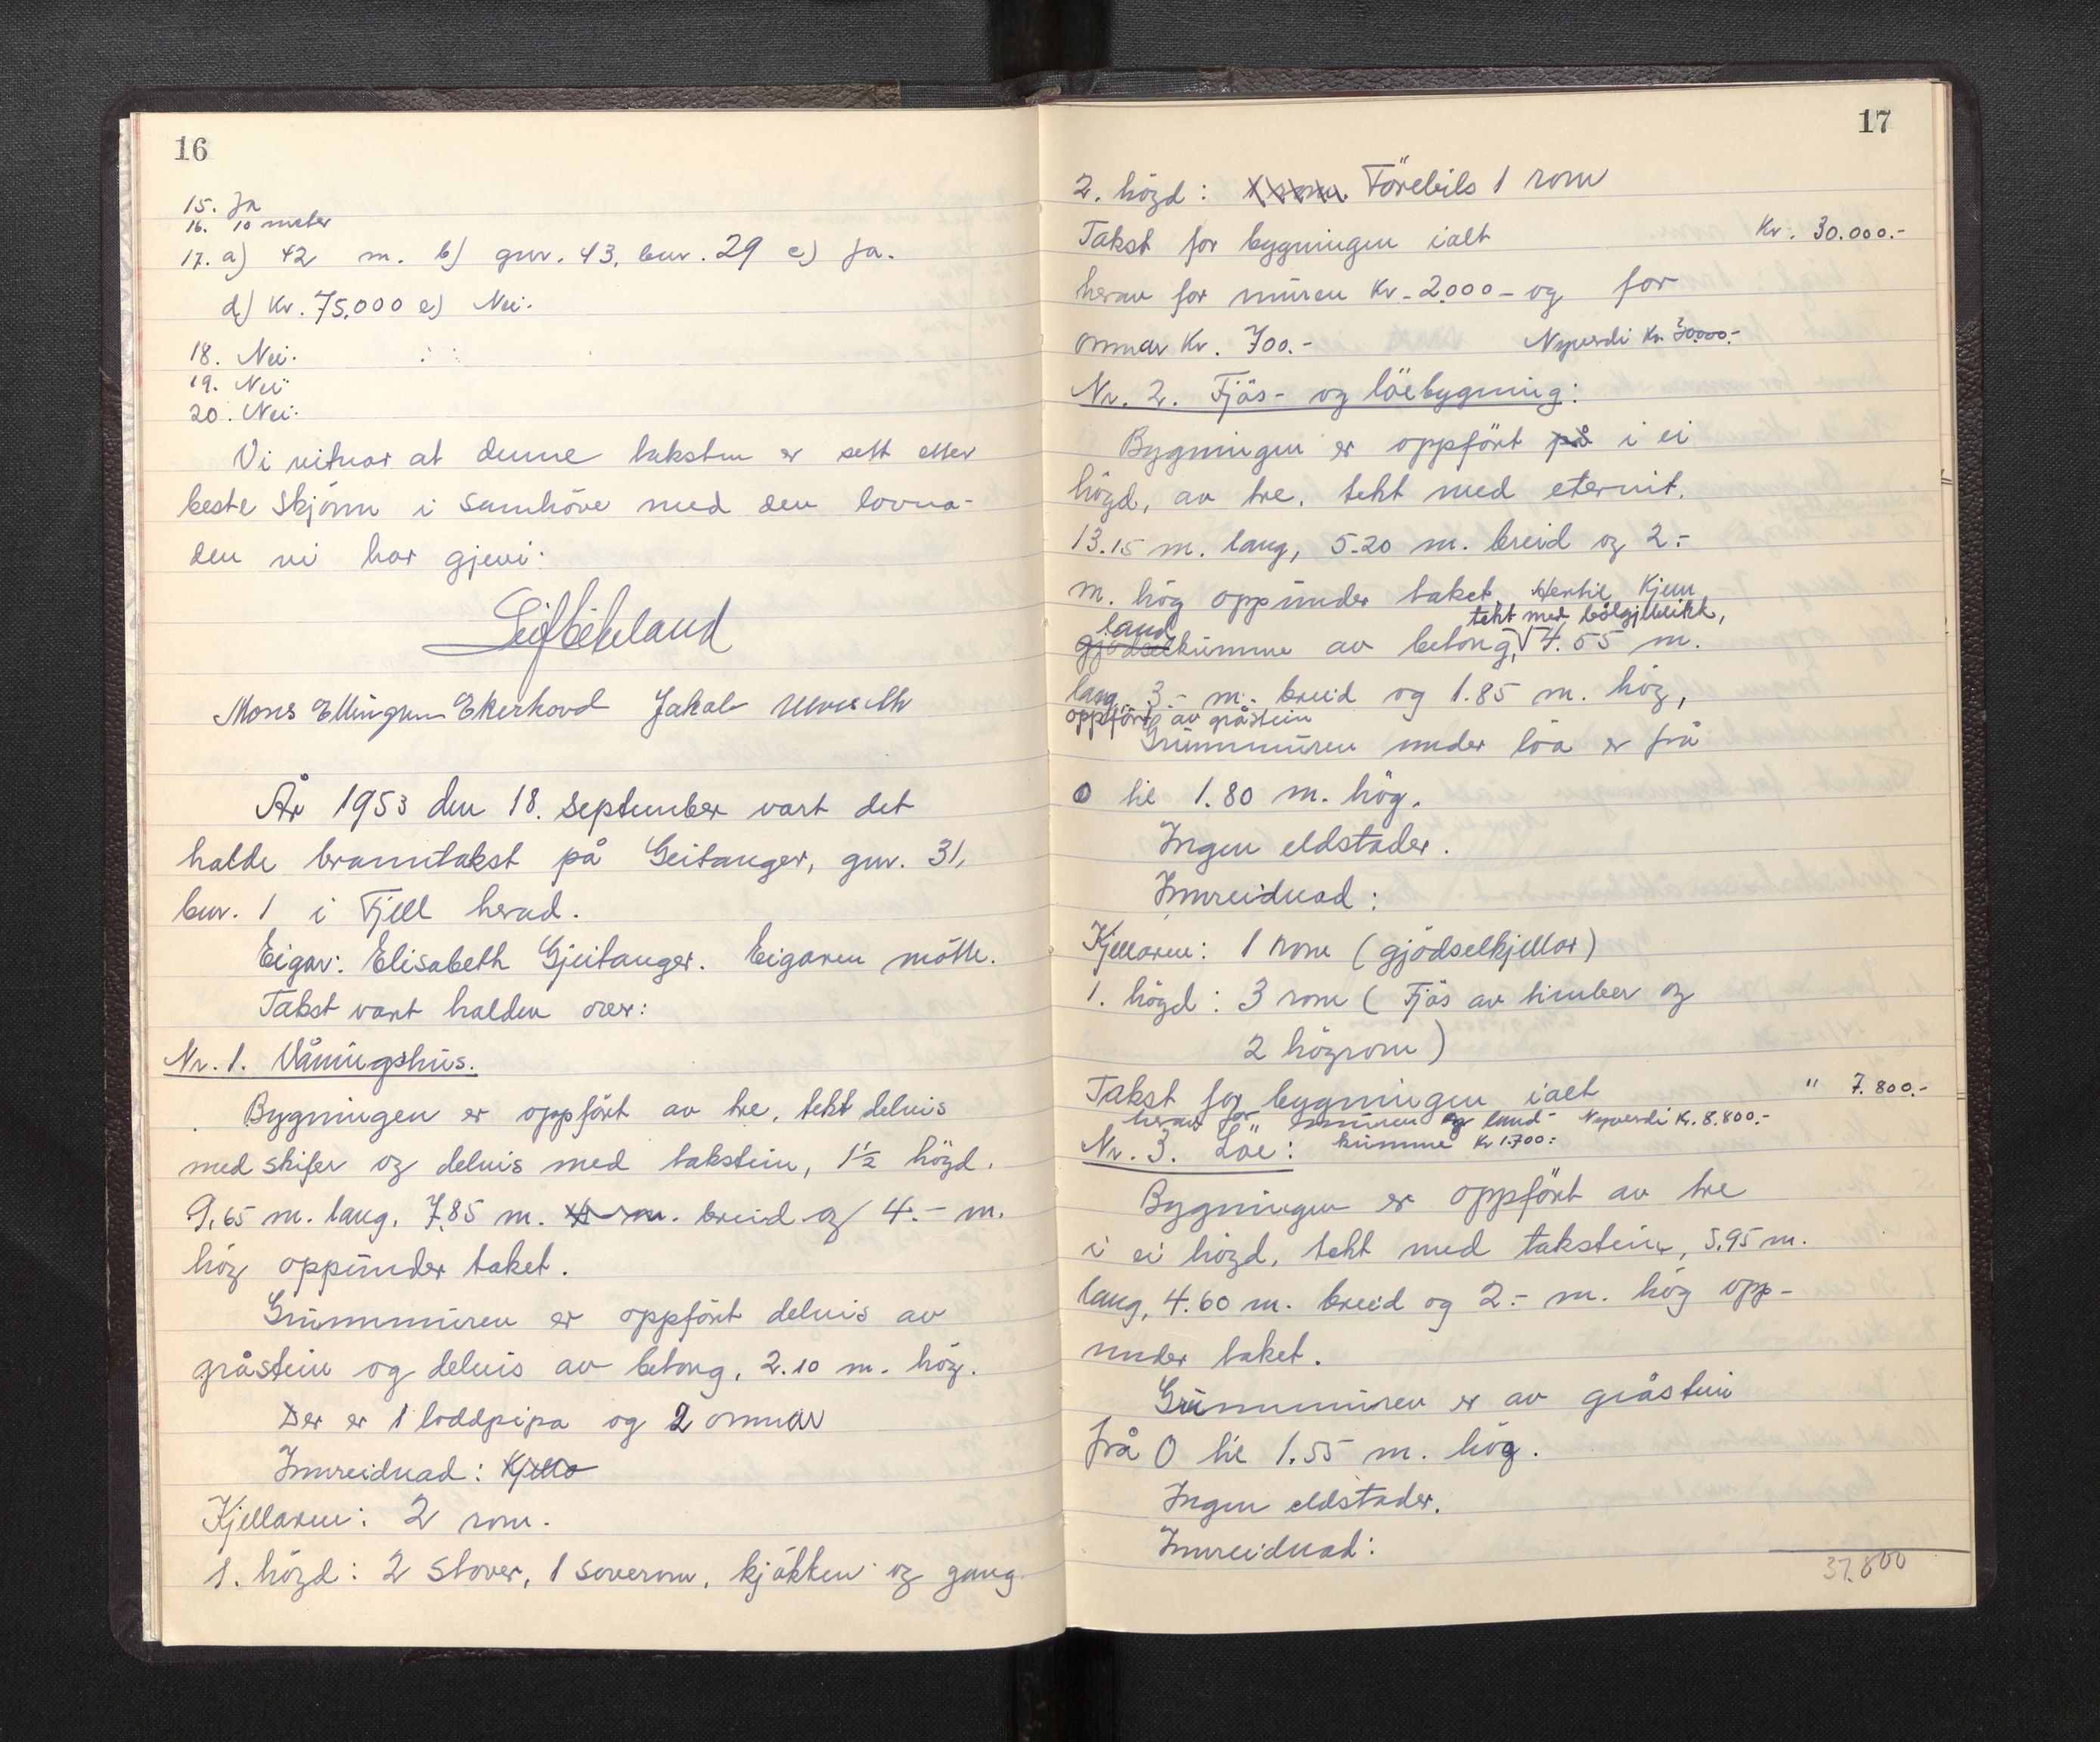 16
15. Ja
16. 10 meter
17. a) 42 m. b) gnr. 43, bnr. 29 c) Ja.
d) Kr. 75.000 e) Nei.
18. Nei.
19. Nei
20. Nei.
Vi vitnar at denne taksten er sett etter
beste skjönn i samhöve med den lovna-
den vi har gjevi.
Mons Ellingsen Ekerhovd Jakob Ulveseth
År 1953 den 18. september vart det
halde branntakst på Geitanger, gnr. 31,
bnr. 1 i Fjell herad.
Eigar: Elisabeth Gjeitanger. Eigaren mötte.
Takst vart halden over:
Nr. 1. Våningshus.
Bygningen er oppfört av tre, tekt delvis
med skifer og delvis med takstein, 1½ högd.
9,65 m. lang, 7,85 m. breid og 4.- m.
hög oppunder taket.
Grunnmuren er oppfört delvis av
gråstein og delvis av betong, 2.10 m. hög.
Der er 1 loddpipa og 2 omnar
Innreidnad: Kjella
Kjellaren: 2 rom.
1. högd: 2 stover, 1 soverom, kjökken og gang
17
2. högd: 1 rom. Förebils 1 rom
Takst for bygningen ialt Kr. 30.000.-
herav for muren Kr. 2.000 - og for
omnar Kr. 700.- Nyverdi Kr. 30000.-
Nr. 2. Fjös- og löebygning:
Bygningen er oppfört på i ei
högd, av tre, tekt med eternit.
13.15 m. lang, 5.20 m. breid og 2.-
m. hög oppunder taket. Hertil kjem
tekt med bölgjeblikk,
land
gjödselkumme av betong, 4.55 m.
lang, 3.- m. breid og 1.85 m. hög,
oppfört av gråstein
Grunnmuren under löa er frå
0 til 1.80 m. hög.
Ingen eldstader.
Innreidnad:
Kjellaren: 1 rom (gjödselkjellar)
1. högd: 3 rom (Fjös av timber og
2 högrom)
Takst for bygningen ialt " 7.800.-
herav for muren og land- Nyverdi Kr. 8.800.-
kumme Kr 1.700:
Nr. 3. Löe:
Bygningen er oppfört av tre
i ei högd, tekt med takstein, 5,95 m.
lang, 4.60 m. breid og 2.- m. hög opp-
under taket.
Grunnmuren er av gråstein
frå 0 til 1.55 m. hög.
Ingen eldstader.
Innreidnad:
37.800